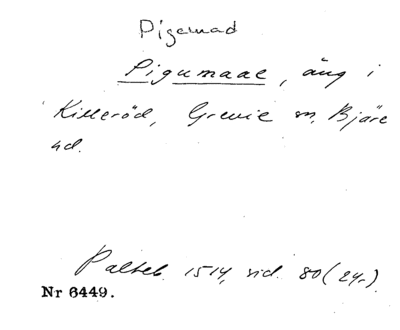 Pigemad
Pigumaae, äng i
Killeröd, Grevie sn, Bjäre
hd.
Palteb. 1514, sid. 80 (24r).
Nr 6449.